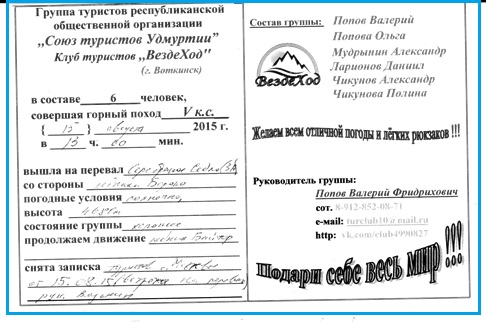 Группа туристов республиканской
общественной организации
„Союз туристов Удмуртии”
Клуб туристов „ВездеХод"
(г. Воткинск)
в составе 6 человек,
совершая горный поход V к.с.
{ 15 } августа 2015 г.
в 13 ч. 00 мин.
вышла на перевал
со стороны ледника
погодные условия солнечно,
высота
состояние группы
продолжаем движение ледник
снята записка туристов
от 15.08.15
рук.
Состав группы: Попов Валерий
Попова Ольга
Мудрынин Александр
Ларионов Даниил
Чикунов Александр
Чикунова Полина
ВездеХод
Желаем всем отличной погоды и лёгких рюкзаков !!!
Руководитель группы:
Попов Валерий Фридрихович
сот. 8-912-852-08-71
e-mail: turclub10@mail.ru
http: vk.com/club4990827
Подари себе весь мир !!!